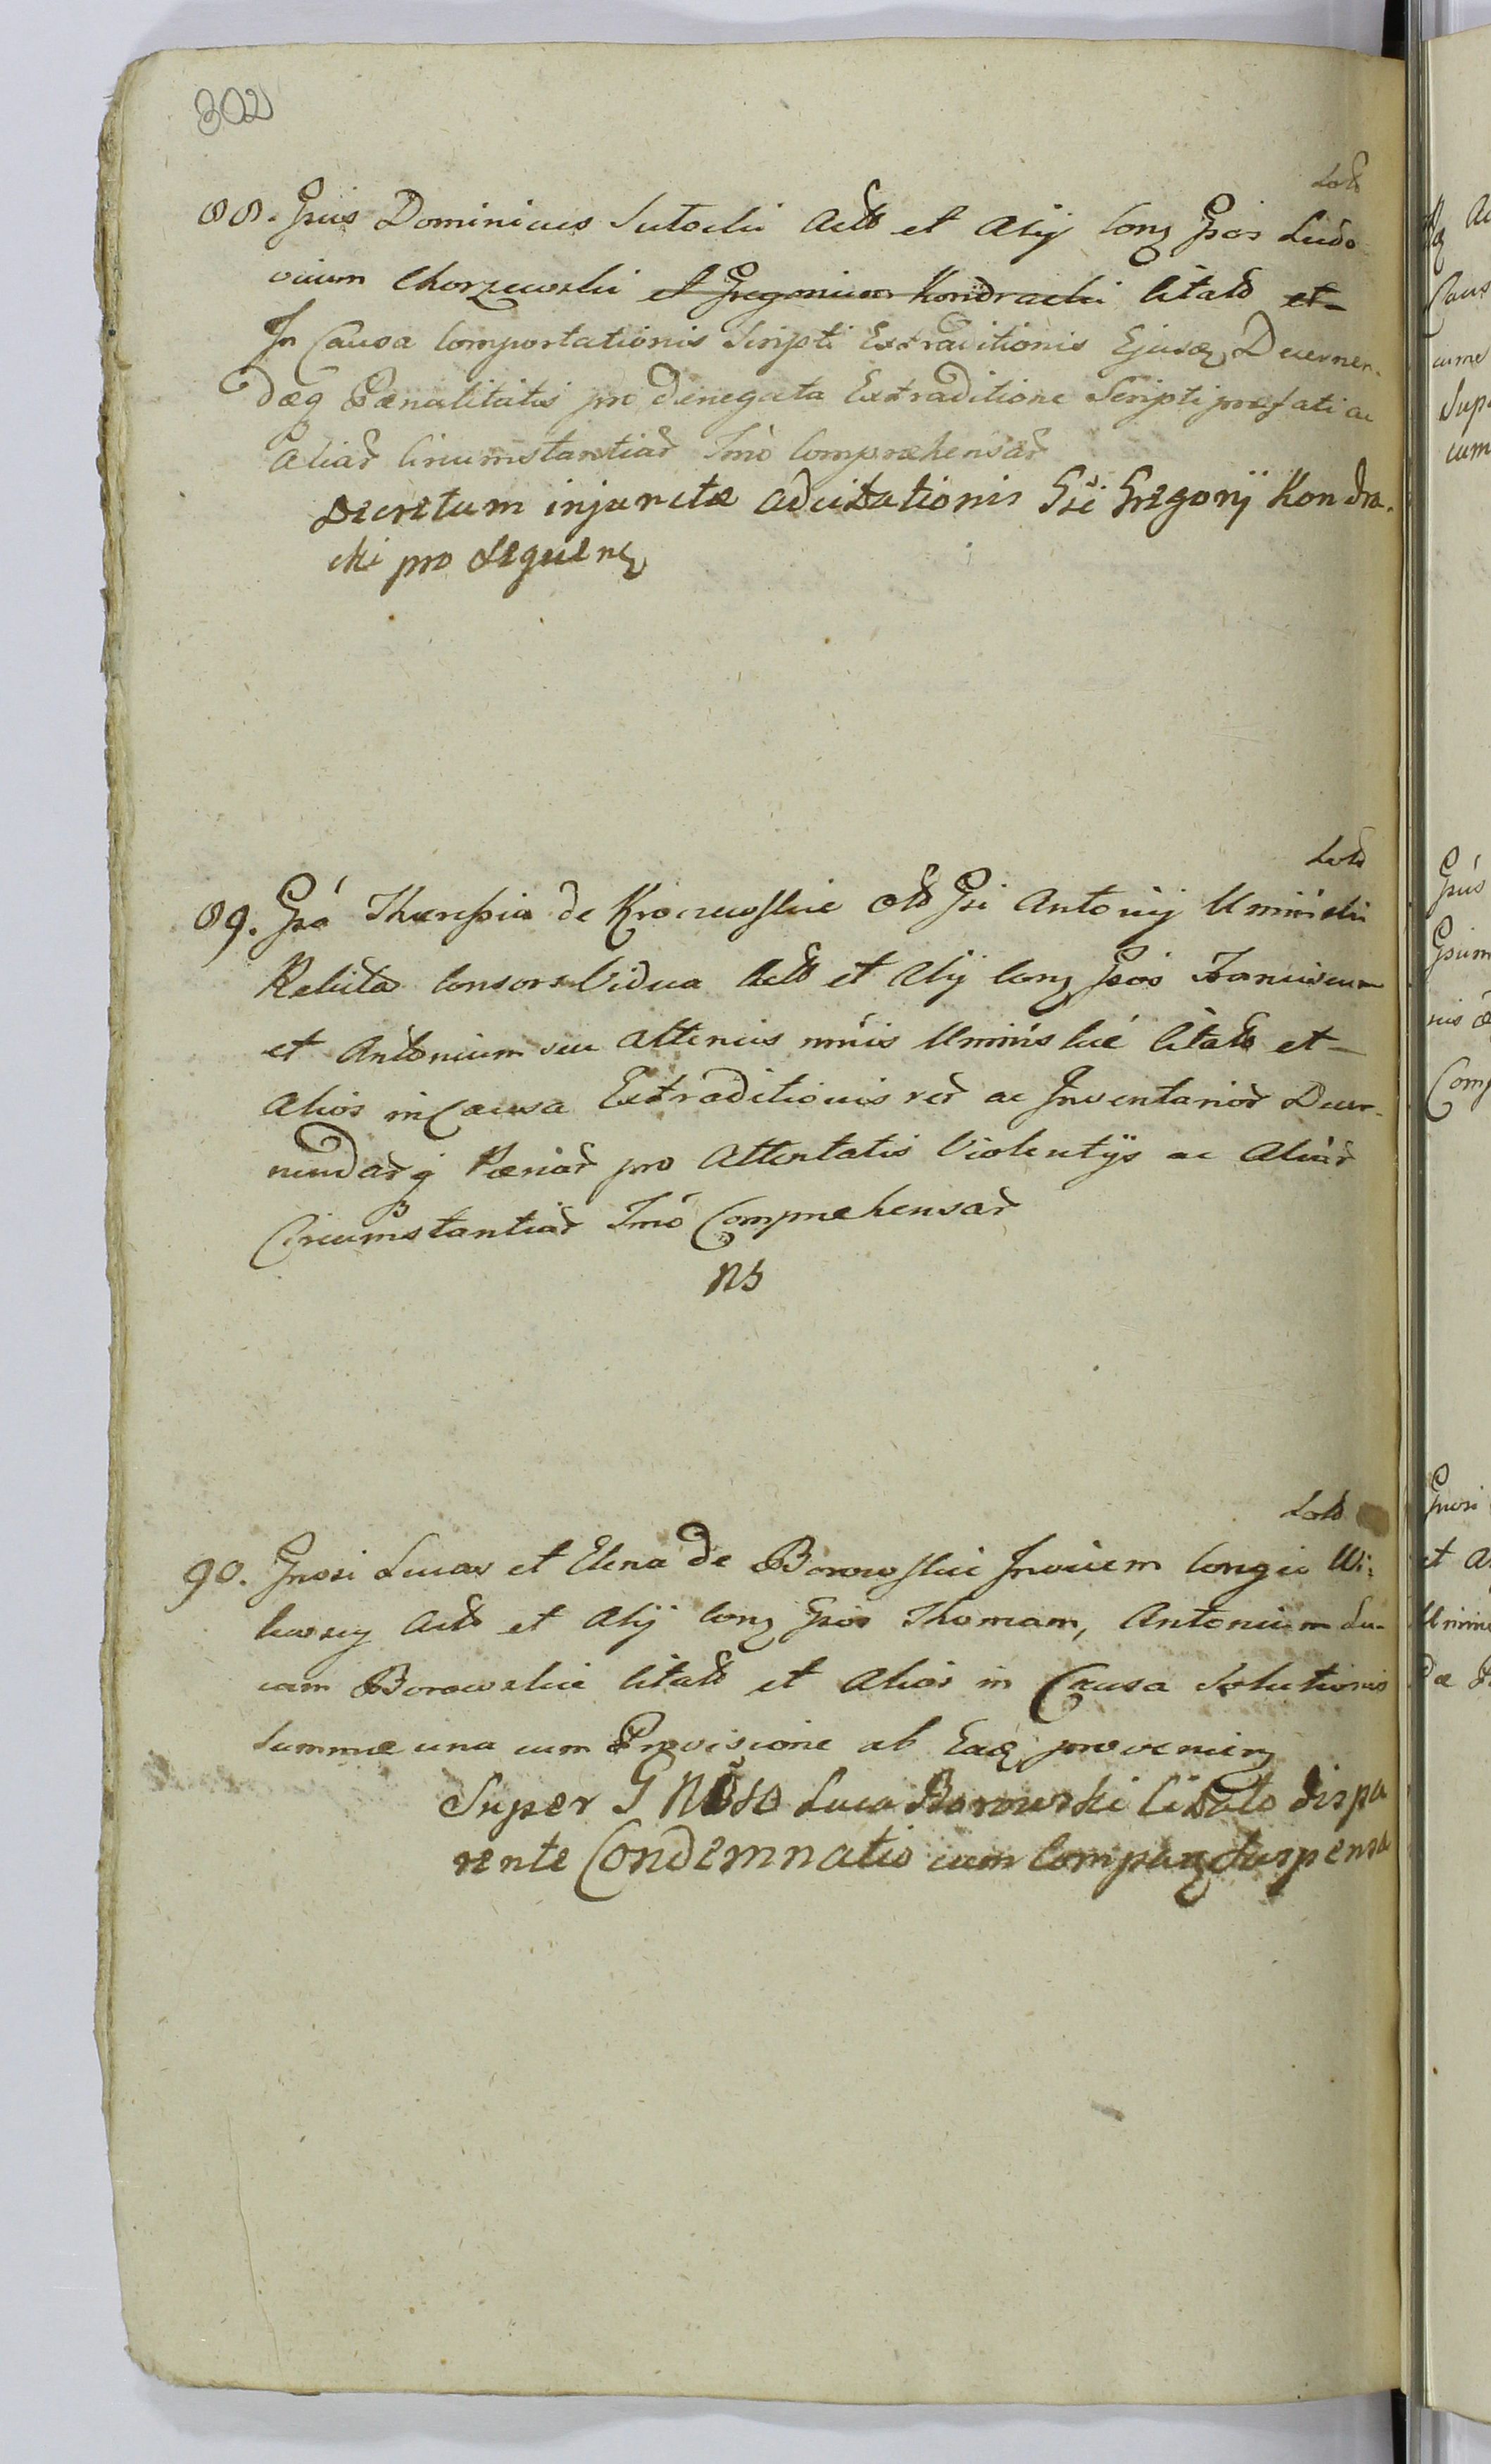 302
88. Gsus Dominicus Sutocki Actb et Alij Conz Gsos Ludo
vicum Chorzewski et Gregorium Kondracki Citatb et
In Causa Comportationis Scripti Extraditionis Ejusdz Decernen-
dæq Pænalitatis pro denegata Extraditione Scripti præfati ac
Aliar Circumstantiar Imo Compræhensar
Decretum injunctæ adcitationis Gsi Gregorij Kondra-
cki pro sequenz
89. Gsa Theressia de Kroczewskie Gsi Antonij Uminski
Relicta Consors Vidua Actb et Alij Conz Gsos Franciscum
et Antonium seu Alterius nminis Uminskie Citatb et
Alios in Causa Extraditionis rer ac Inventarior Decer-
nendarq Pænar pro Attentatis Violentijs ac Aliar
Circumstantiar Imo Compræhensar
NS
90. Gnosi Lucas et Elena de Borowskie Invicem Conges Wi-
Actb et Alij Conz Gsos Thomam, Antonium Lu-
cam Borowskie Citatb et Alios in Causa Solutionis
Summæ una cum Provisione ab Eadz provenienz
Super GNoso Luca Borowski Citato dispa
rente Condemnatio cum Companz Suspensa